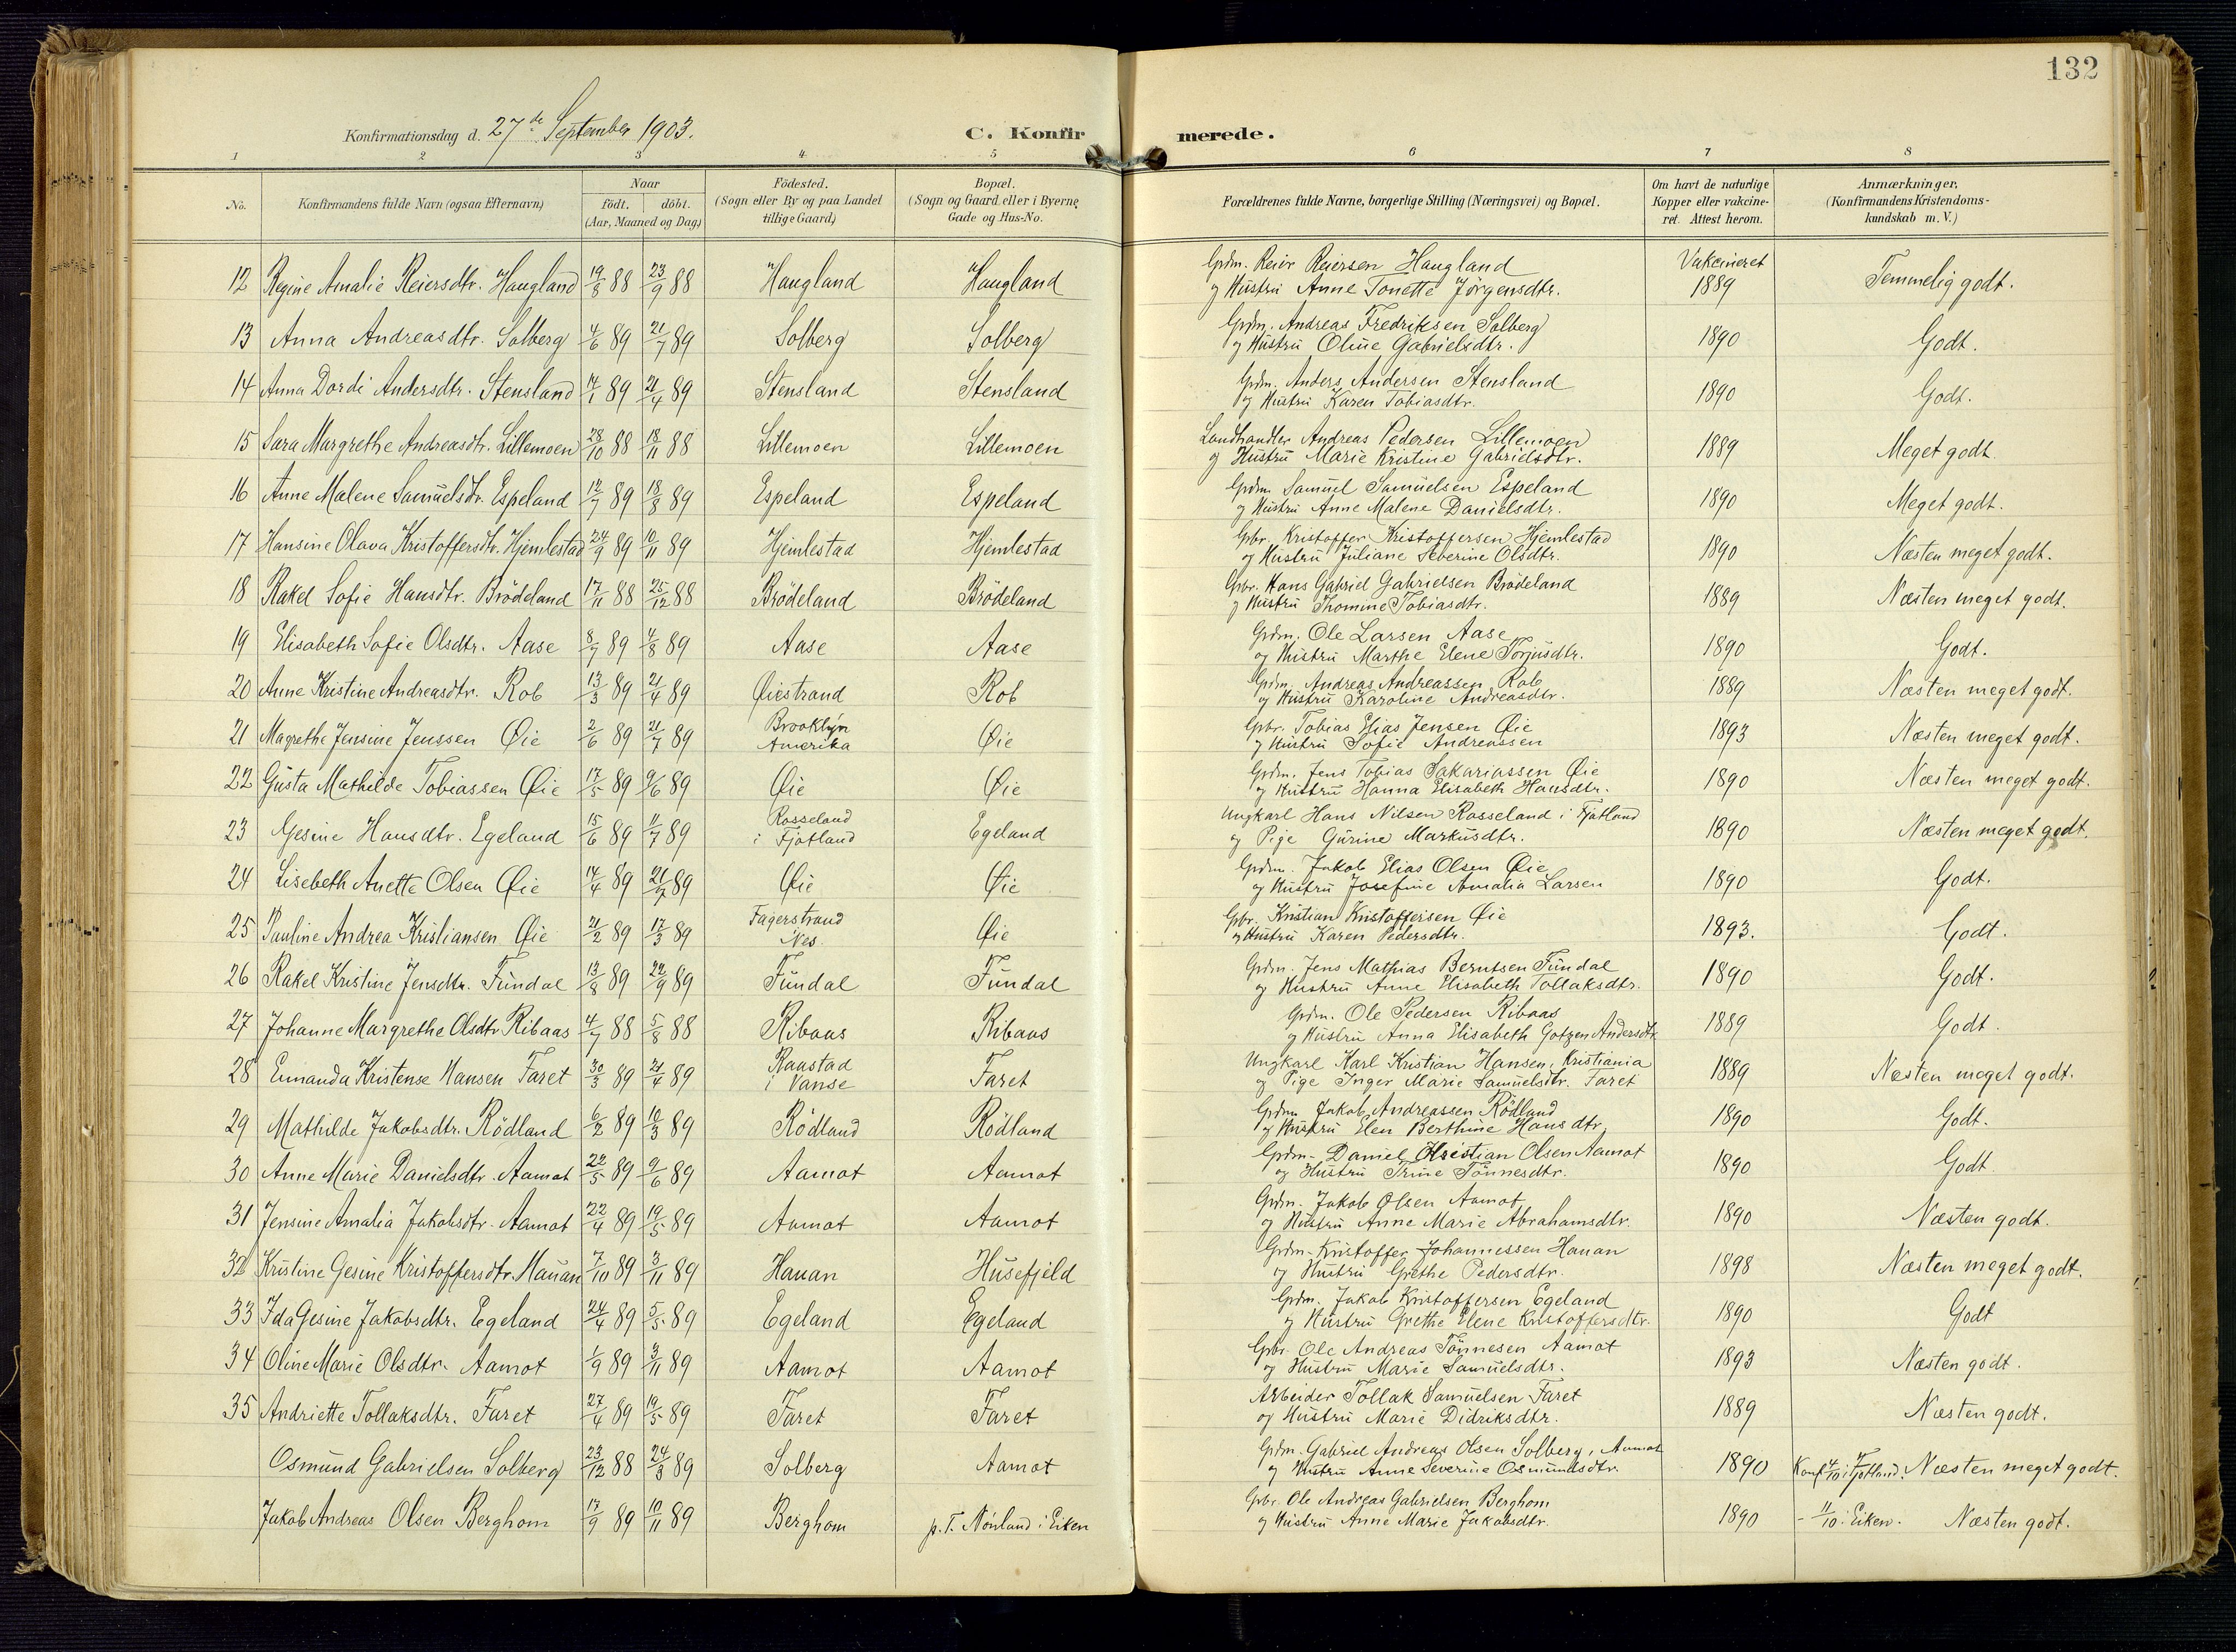 132
Konfirmationsdag d. 27de September 1903.
C. Konfirmerede.
1 2 3 4 5 6 7 8
No.
Konfirmandens fulde Navn (ogsaa Efternavn)
Naar
födt. döbt.
(Aar, Maaned og Dag)
Födested.
(Sogn eller By og paa Landet
tillige Gaard)
Bopæl.
(Sogn og Gaard eller i Byerne
Gade og Hus-No.
Forældrenes fulde Navne, borgerlige Stilling (Næringsvei) og Bopæl.
Om havt de naturlige
Kopper eller vakcine-
ret. Attest herom.
Anmærkninger.
(Konfirmandens Kristendoms-
kundskab m. V.)
12 Regine Amalie Reiersdtr. Haugland 19/8 88 23/9 88 Haugland Haugland Grdm. Reier Reiersen Haugland Vakcineret
og Hustru Anne Tonette Jörgensdtr. 1889 Temmelig godt.
13 Anna Andreasdtr. Solberg 4/6 89 21/7 89 Solberg Solberg Grdm. Andreas Fredriksen Solberg
og Hustru Oline Gabrielsdtr. 1890 Godt.
14 Anna Dordi Andersdtr. Stensland 14/1 89 21/4 89 Stensland Stensland Grdm. Anders Andersen Stensland
og Hustru Karen Tobiasdtr. 1890 Godt.
15 Sara Margrethe Andreasdtr. Lillemoen 28/10 88 18/11 88 Lillemoen Lillemoen Landhandler Andreas Pedersen Lillemoen
og Hustru Marie Kristine Gabrielsdtr. 1889 Meget godt.
16 Anne Malene Samuelsdtr. Espeland 12/7 89 18/8 89 Espeland Espeland Grdm. Samuel Samuelsen Espeland
og Hustru Anne Malene Danielsdtr. 1890 Meget godt.
17 Hansine Olava Kristoffersdtr. Hjemlestad 24/9 89 10/11 89 Hjemlestad Hjemlestad Gbr. Kristoffer Kristoffersen Hjemlestad
og Hustru Juliane Severine Olsdtr. 1890 Næsten meget godt.
18 Rakel Sofie Hansdtr. Brödeland 17/11 88 25/12 88 Brödeland Brödeland Gbr. Hans Gabriel Gabrielsen Brödeland
og Hustru Thomine Tobiasdtr. 1889 Næsten meget godt.
19 Elisabeth Sofie Olsdtr. Aase 8/7 89 4/8 89 Aase Aase Grdm. Ole Larsen Aase
og Hustru Marthe Elene Torjusdtr. 1890 Godt.
20 Anne Kristine Andreasdtr. Rob 13/3 89 21/4 89 Øiestrand Rob Grdm. Andreas Andreassen Rob
og Hustru Karoline Andreasdtr. 1889 Næsten meget godt.
21 Magrethe Jensine Jenssen Øie 2/6 89 21/7 89 Brooklyn
Amerika Øie Gbr. Tobias Elias Jensen Øie
og Hustru Sofie Andreassen 1893 Næsten meget godt.
22 Gusta Mathilde Tobiassen Øie 17/5 89 9/6 89 Øie Øie Grdm. Jens Tobias Sakariassen Øie
og Hustru Hanna Elisabeth Hansdtr. 1890 Næsten meget godt.
23 Gesine Hansdtr. Egeland 15/6 89 11/7 89 Rosseland
i Fjotland Egeland Ungkarl Hans Nilsen Rosseland i Fjotland
og Pige Gurine Markusdtr. 1890 Næsten meget godt.
24 Lisebeth Anette Olsen Øie 14/4 89 21/7 89 Øie Øie Grdm. Jakob Elias Olsen Øie
og Hustru Josefine Amalia Larsen 1890 Godt.
25 Pauline Andrea Kristiansen Øie 21/2 89 17/3 89 Fagerstrand
Nes. Øie Gbr. Kristian Kristoffersen Øie
og Hustru Karen Pedersdtr. 1893. Godt.
26 Rakel Kristine Jensdtr. Fundal 13/8 89 22/9 89 Fundal Fundal Grdm. Jens Mathias Berntsen Fundal
og Hustru Anne Elisabeth Tollaksdtr. 1890 Godt.
27 Johanne Margrethe Olsdtr. Ribaas 4/7 88 5/8 88 Ribaas Ribaas Grdm. Ole Pedersen Ribaas
og Hustru Anna Elisabeth Gotzen Andersdtr. 1889 Godt.
28 Emanda Kristense Hansen Faret 30/3 89 21/4 89 Raustad
i Vanse Faret Ungkarl Karl Kristian Hansen, Kristiania
og Pige Inger Marie Samuelsdtr. Faret 1889 Næsten meget godt.
29 Mathilde Jakobsdtr. Rödland 6/2 89 10/3 89 Rödland Rödland Grdm. Jakob Andreassen Rödland
og Hustru Elen Berthine Hansdtr. 1890 Godt.
30 Anne Marie Danielsdtr. Aamot 22/5 89 9/6 89 Aamot Aamot Grdm. Daniel Kristian Olsen Aamot
og Hustru Trine Tönnesdtr. 1890 Godt.
31 Jensine Amalia Jakobsdtr. Aamot 22/4 89 19/5 89 Aamot Aamot Grdm. Jakob Olsen Aamot
og Hustru Anne Marie Abrahamsdtr. 1890 Næsten godt.
32 Kristine Gesine Kristoffersdtr. Hauan 7/10 89 3/11 89 Hauan Husefjeld Grdm. Kristoffer Johannessen Hauan
og Hustru Grethe Pedersdtr. 1898 Næsten meget godt.
33 Ida Gesine Jakobsdtr. Egeland 24/4 89 5/5 89 Egeland Egeland Grdm. Jakob Kristoffersen Egeland
og Hustru Grethe Elene Kristoffersdtr. 1890 Godt
34 Oline Marie Olsdtr. Aamot 1/9 89 3/11 89 Aamot Aamot Gbr. Ole Andreas Tönnesen Aamot
og Hustru Marie Samuelsdtr. 1893 Næsten godt.
35 Andriette Tollaksdtr. Faret 27/4 89 19/5 89 Faret Faret Arbeider Tollak Samuelsen Faret
og Hustru Marie Didriksdtr. 1889 Næsten godt.
Osmund Gabrielsen Solberg 23/12 88 24/3 89 Solberg Aamot Grdm. Gabriel Andreas Olsen Solberg, Aamot
og Hustru Anne Severine Osmundsdtr. 1890 Konf. 4/10 i Fjotland. Næsten meget godt.
Jakob Andreas Olsen Berghom 17/9 89 10/11 89 Berghom p. T. Nonland i Eiken Gbr. Ole Andreas Gabrielsen Berghom
og Hustru Anne Marie Jakobsdtr. 1890 - 11/10 i Eiken. Næsten godt.